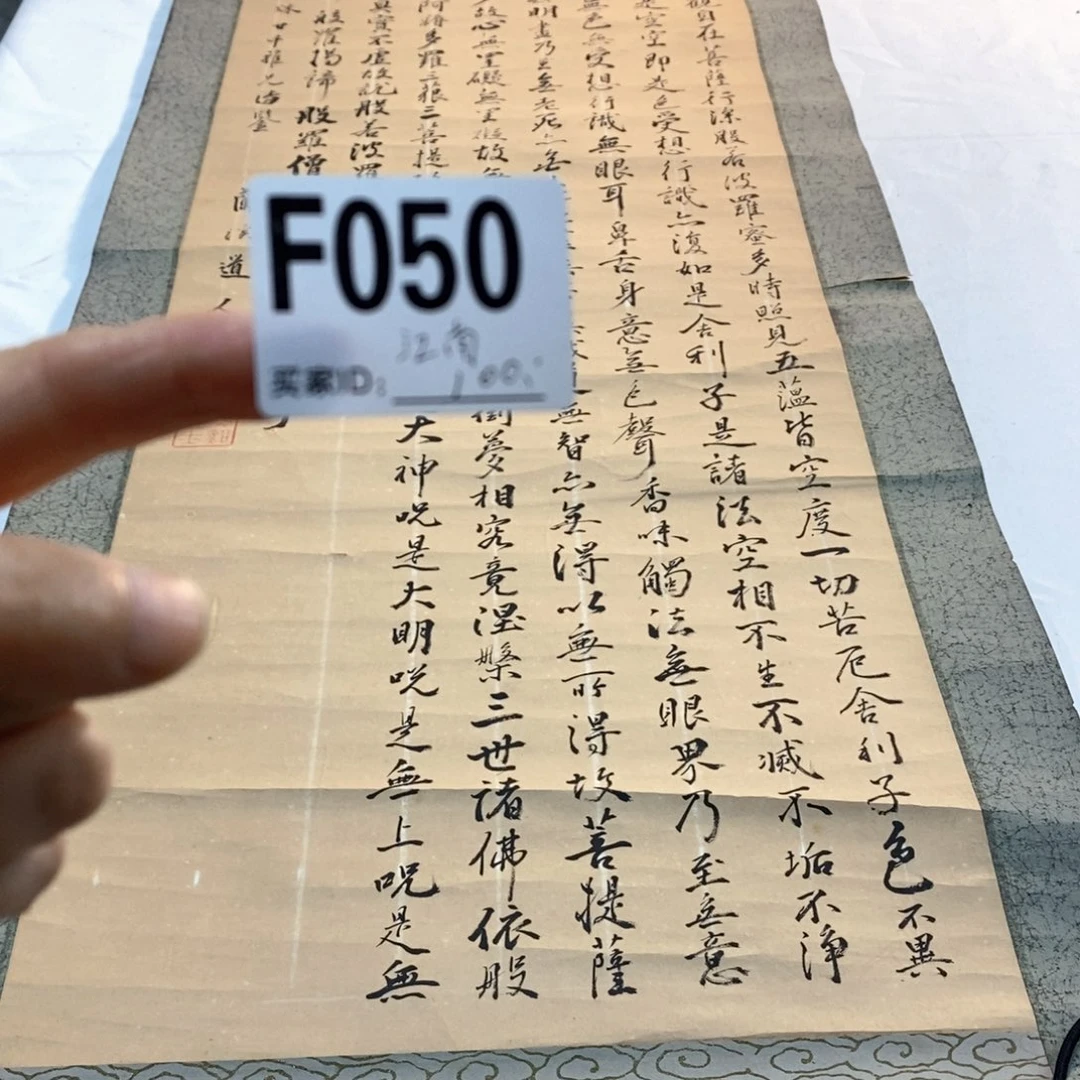 觀自在菩薩行深般若波羅蜜多時照見五蘊皆空度一切苦厄舍利子色不異
是空空即是色受想行識亦復如是舍利子是諸法空相不生不滅不垢不淨
無色無受想行識無眼耳鼻舌身意無色聲香味觸法無眼界乃至無意
明盡乃至無老死亦無 無智亦無得以無所得故菩提薩
故心無罣礙無罣礙故無 倒夢相究竟涅槃三世諸佛依般
阿耨多羅三藐三菩提 大神咒是大明咒是無上咒是無
真實不虛故說般若波羅
般羅揭諦 般羅僧
雅兄法鑒
道人
F050
江南
买家ID: 100.